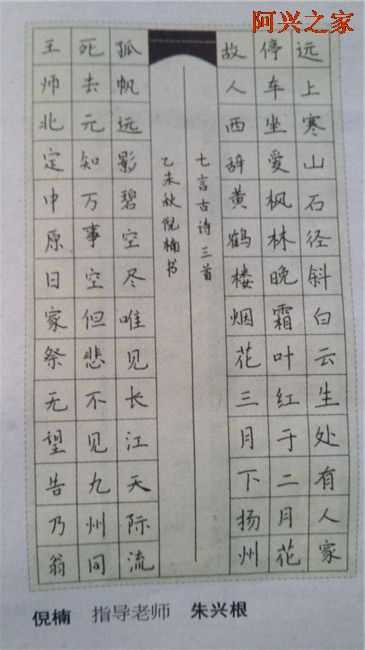 阿兴之家
远上寒山石径斜白云生处有人家
停车坐爱枫林晚霜叶红于二月花
故人西辞黄鹤楼烟花三月下扬州
七言古诗三首
乙未秋倪楠书
孤帆远影碧空尽唯见长江天际流
死去元知万事空但悲不见九州同
王师北定中原日家祭无望告乃翁
倪楠 指导老师 朱兴根